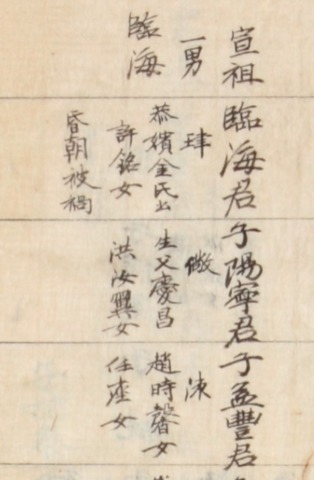 宣祖
一男
臨海
臨海君
珒
恭嬪金氏出
許銘女
昏朝被禍
子陽寧君
儆
生父慶昌
洪汝翼女
子益豐君
涑
趙時馨女
任座女